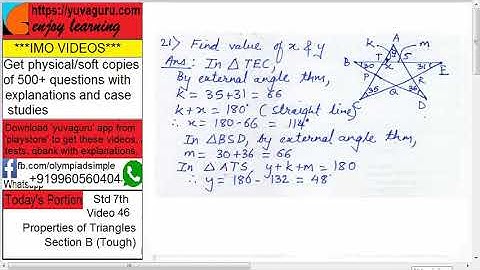 https://yuvaguru.com
enjoy learning
***IMO VIDEOS***
Get physical/soft copies
of 500+ questions with
explanations and case
studies
Download 'yuvaguru' app from
'playstore' to get these videos,
tests, qbank with explanations.
fb.com/olympiadsimple
Whatsapp
+919960560404
Today's Portion
Std 7th
Video 46
Properties of Triangles
Section B (Tough)
21) Find value of x & y
Ans: In △TEC,
By external angle thm,
k = 35 + 31 = 66
k + x = 180° (straight line)
∴ x = 180 - 66 = 114°
In △BSD, by external angle thm,
m = 30 + 36 = 66
In △ATS, y + k + m = 180
∴ y = 180 - 132 = 48°
A
k
m
y
B
30
T
x
S
31
E
P
R
35
Q
36
C
D